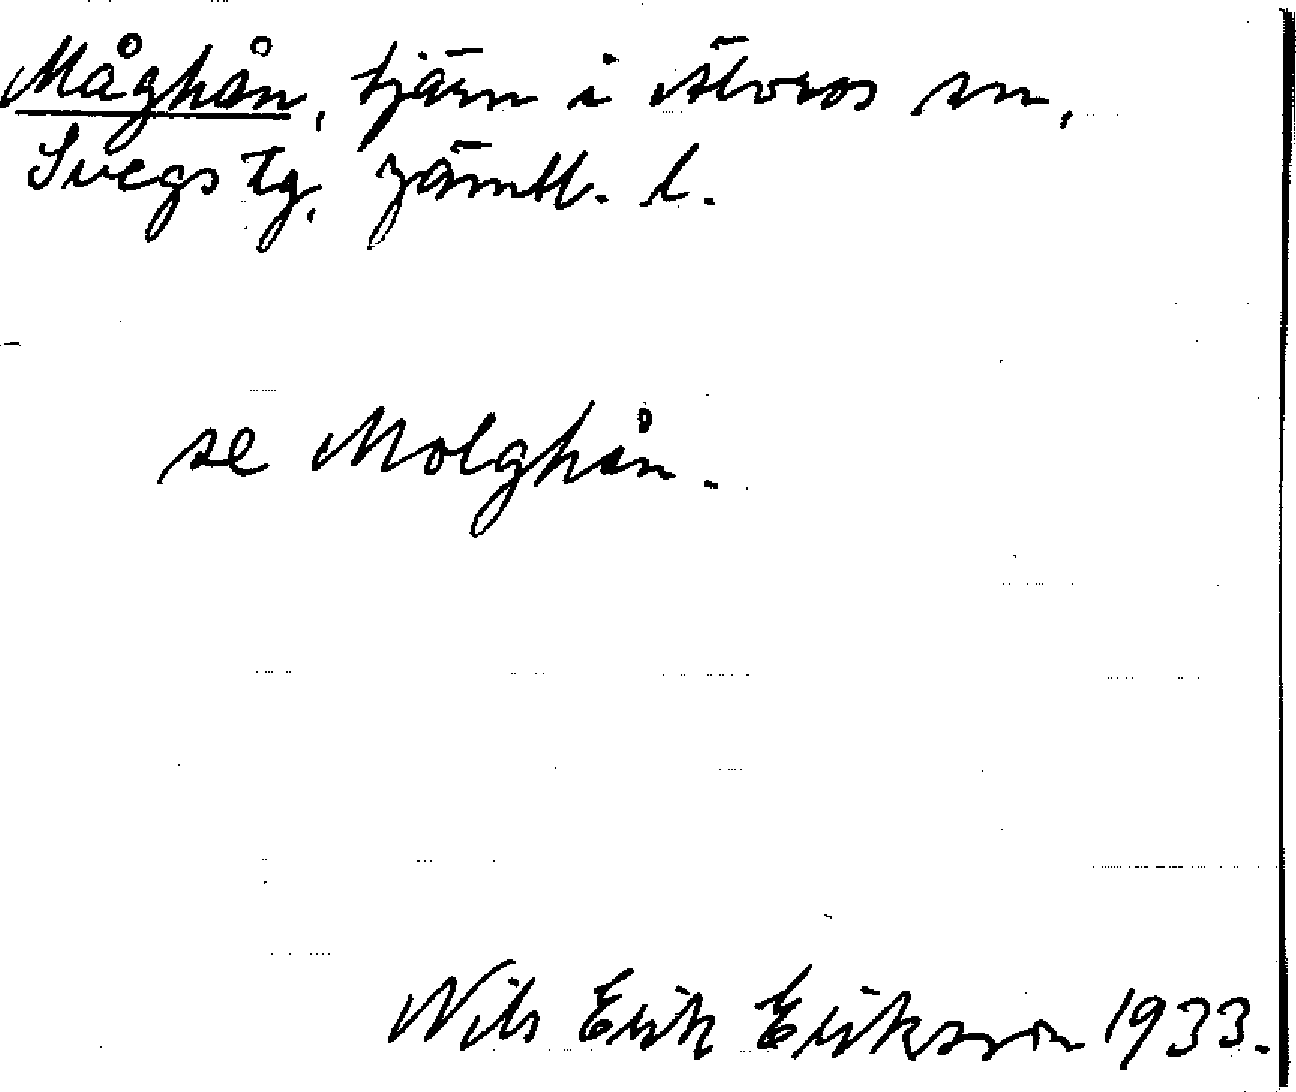 Måghån, tjärn i Älvros sn,
Svegs tg, Jämtl. l.
se Molghån.
Nils Erik Eriksson 1933.